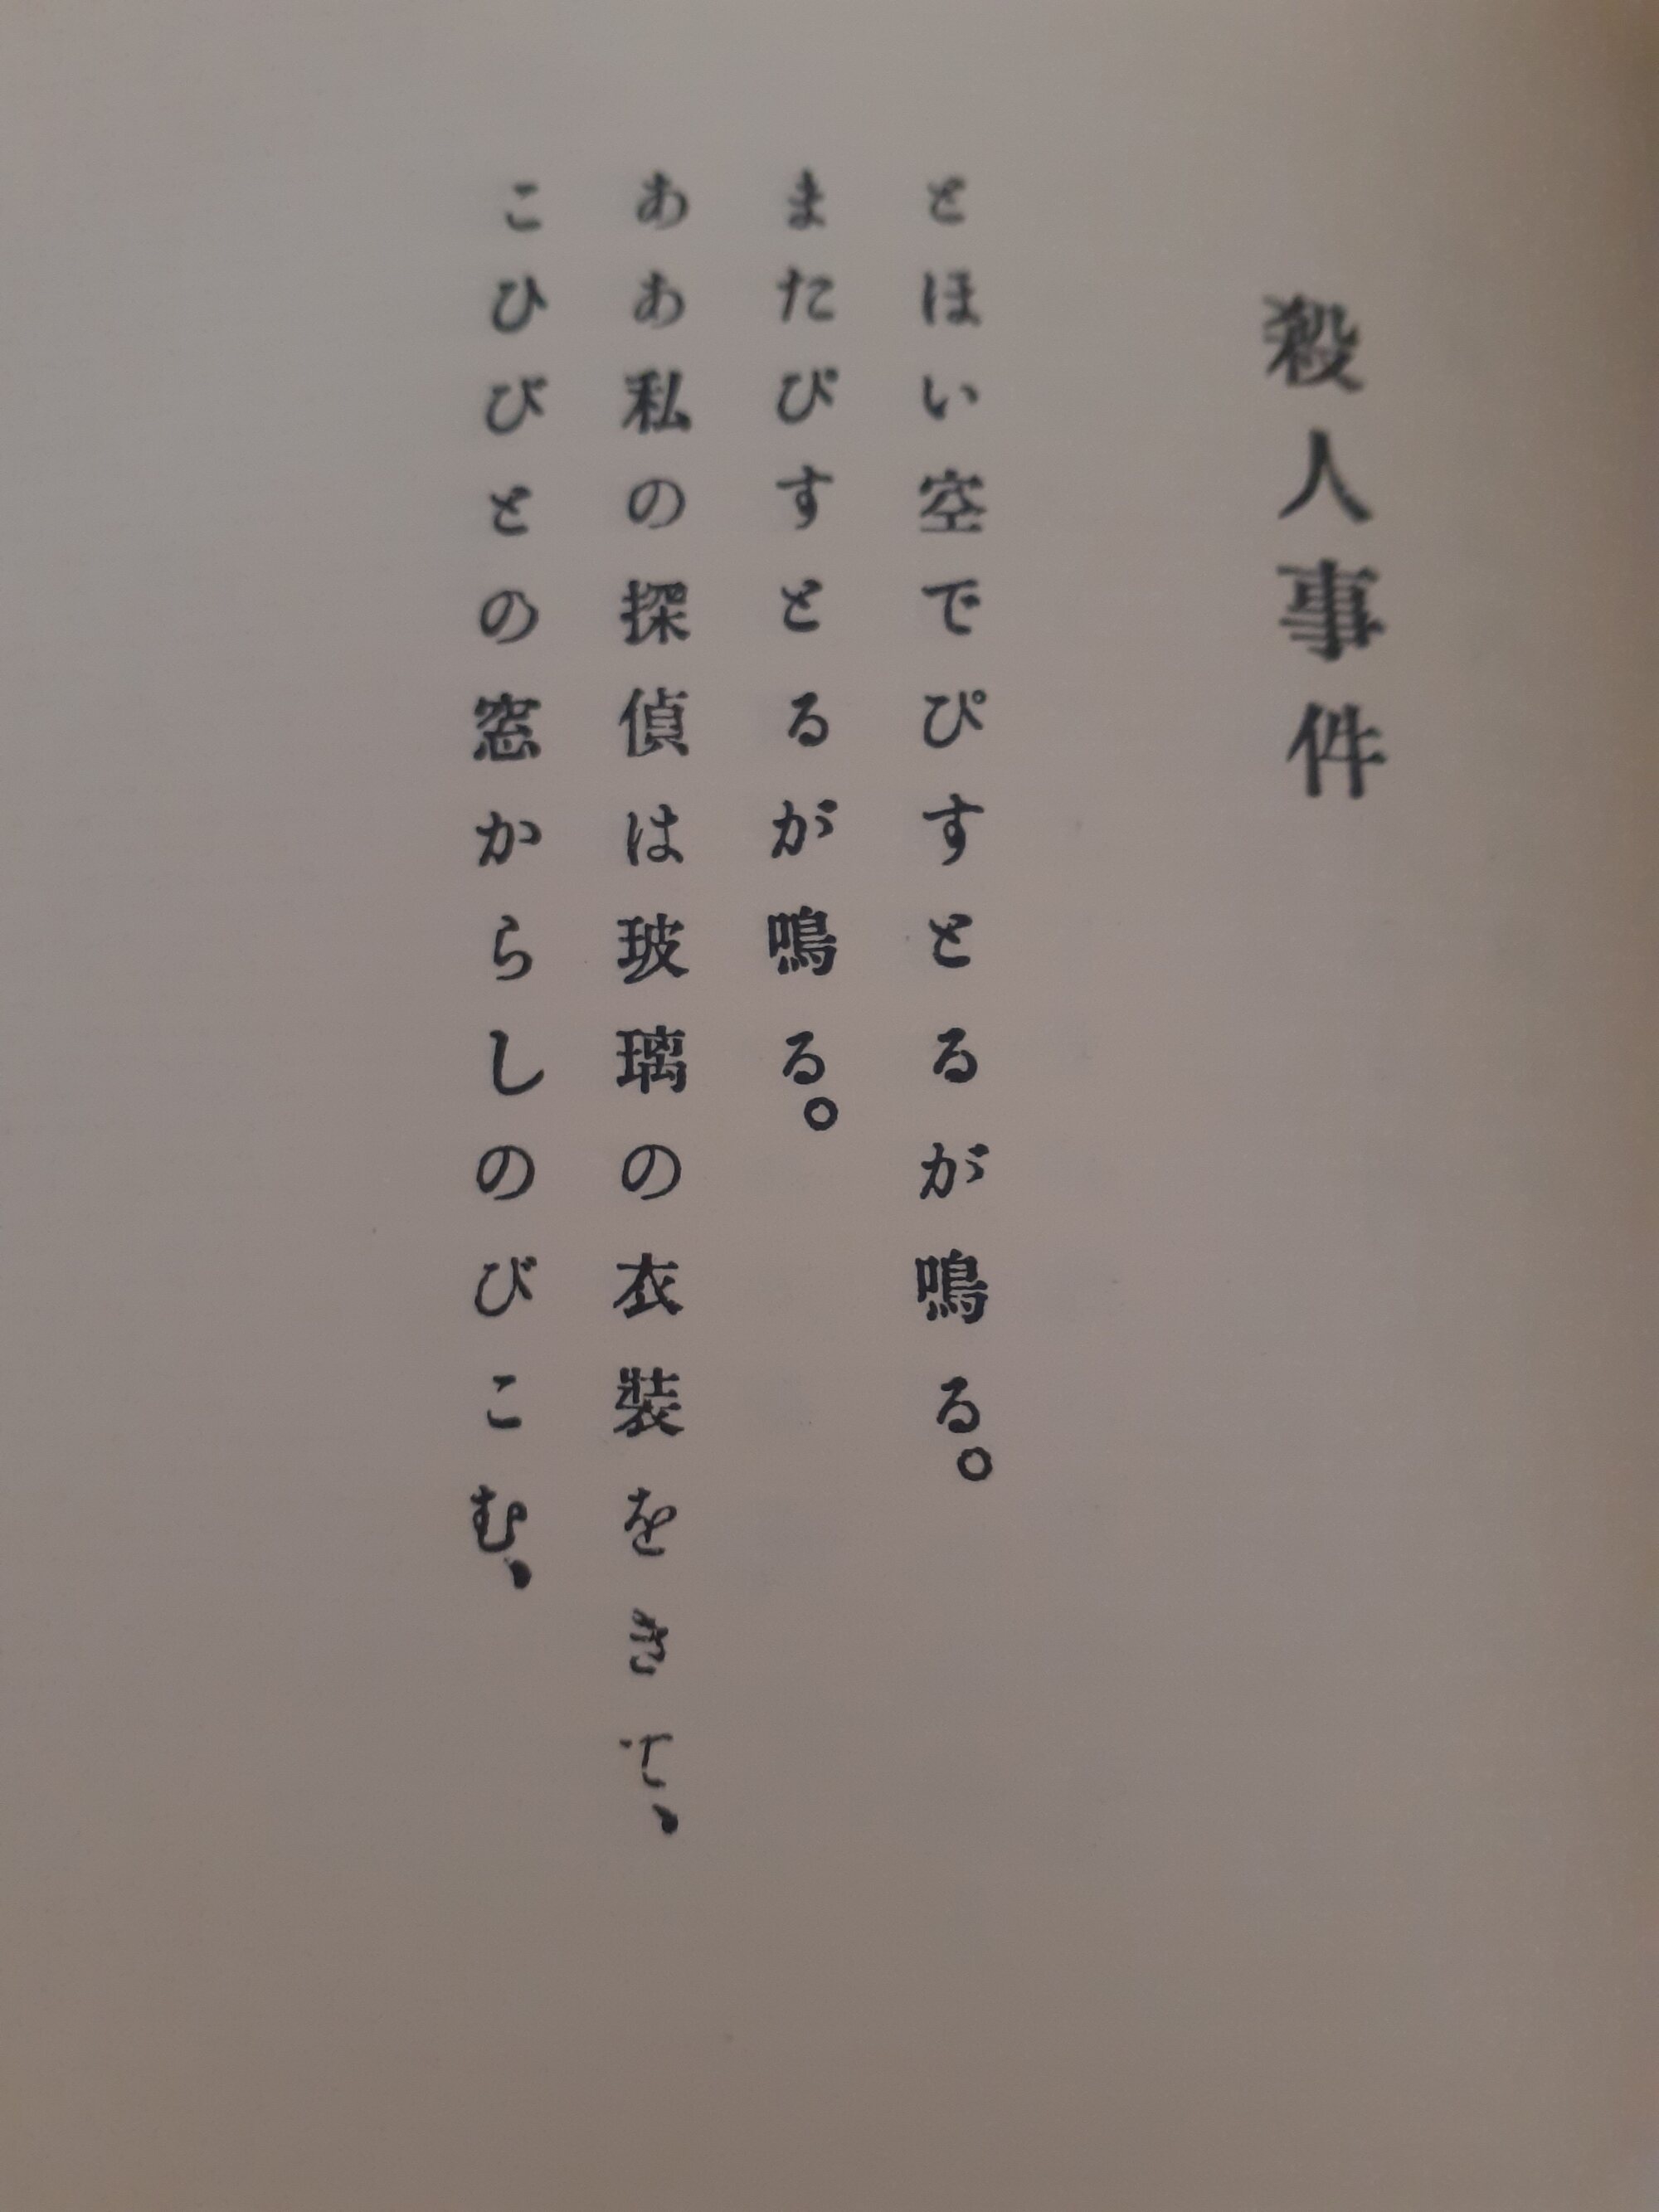 殺人事件
とほい空でぴすとるが鳴る。
またぴすとるが鳴る。
ああ私の探偵は玻璃の衣裝をきて、
こひびとの窓からしのびこむ、